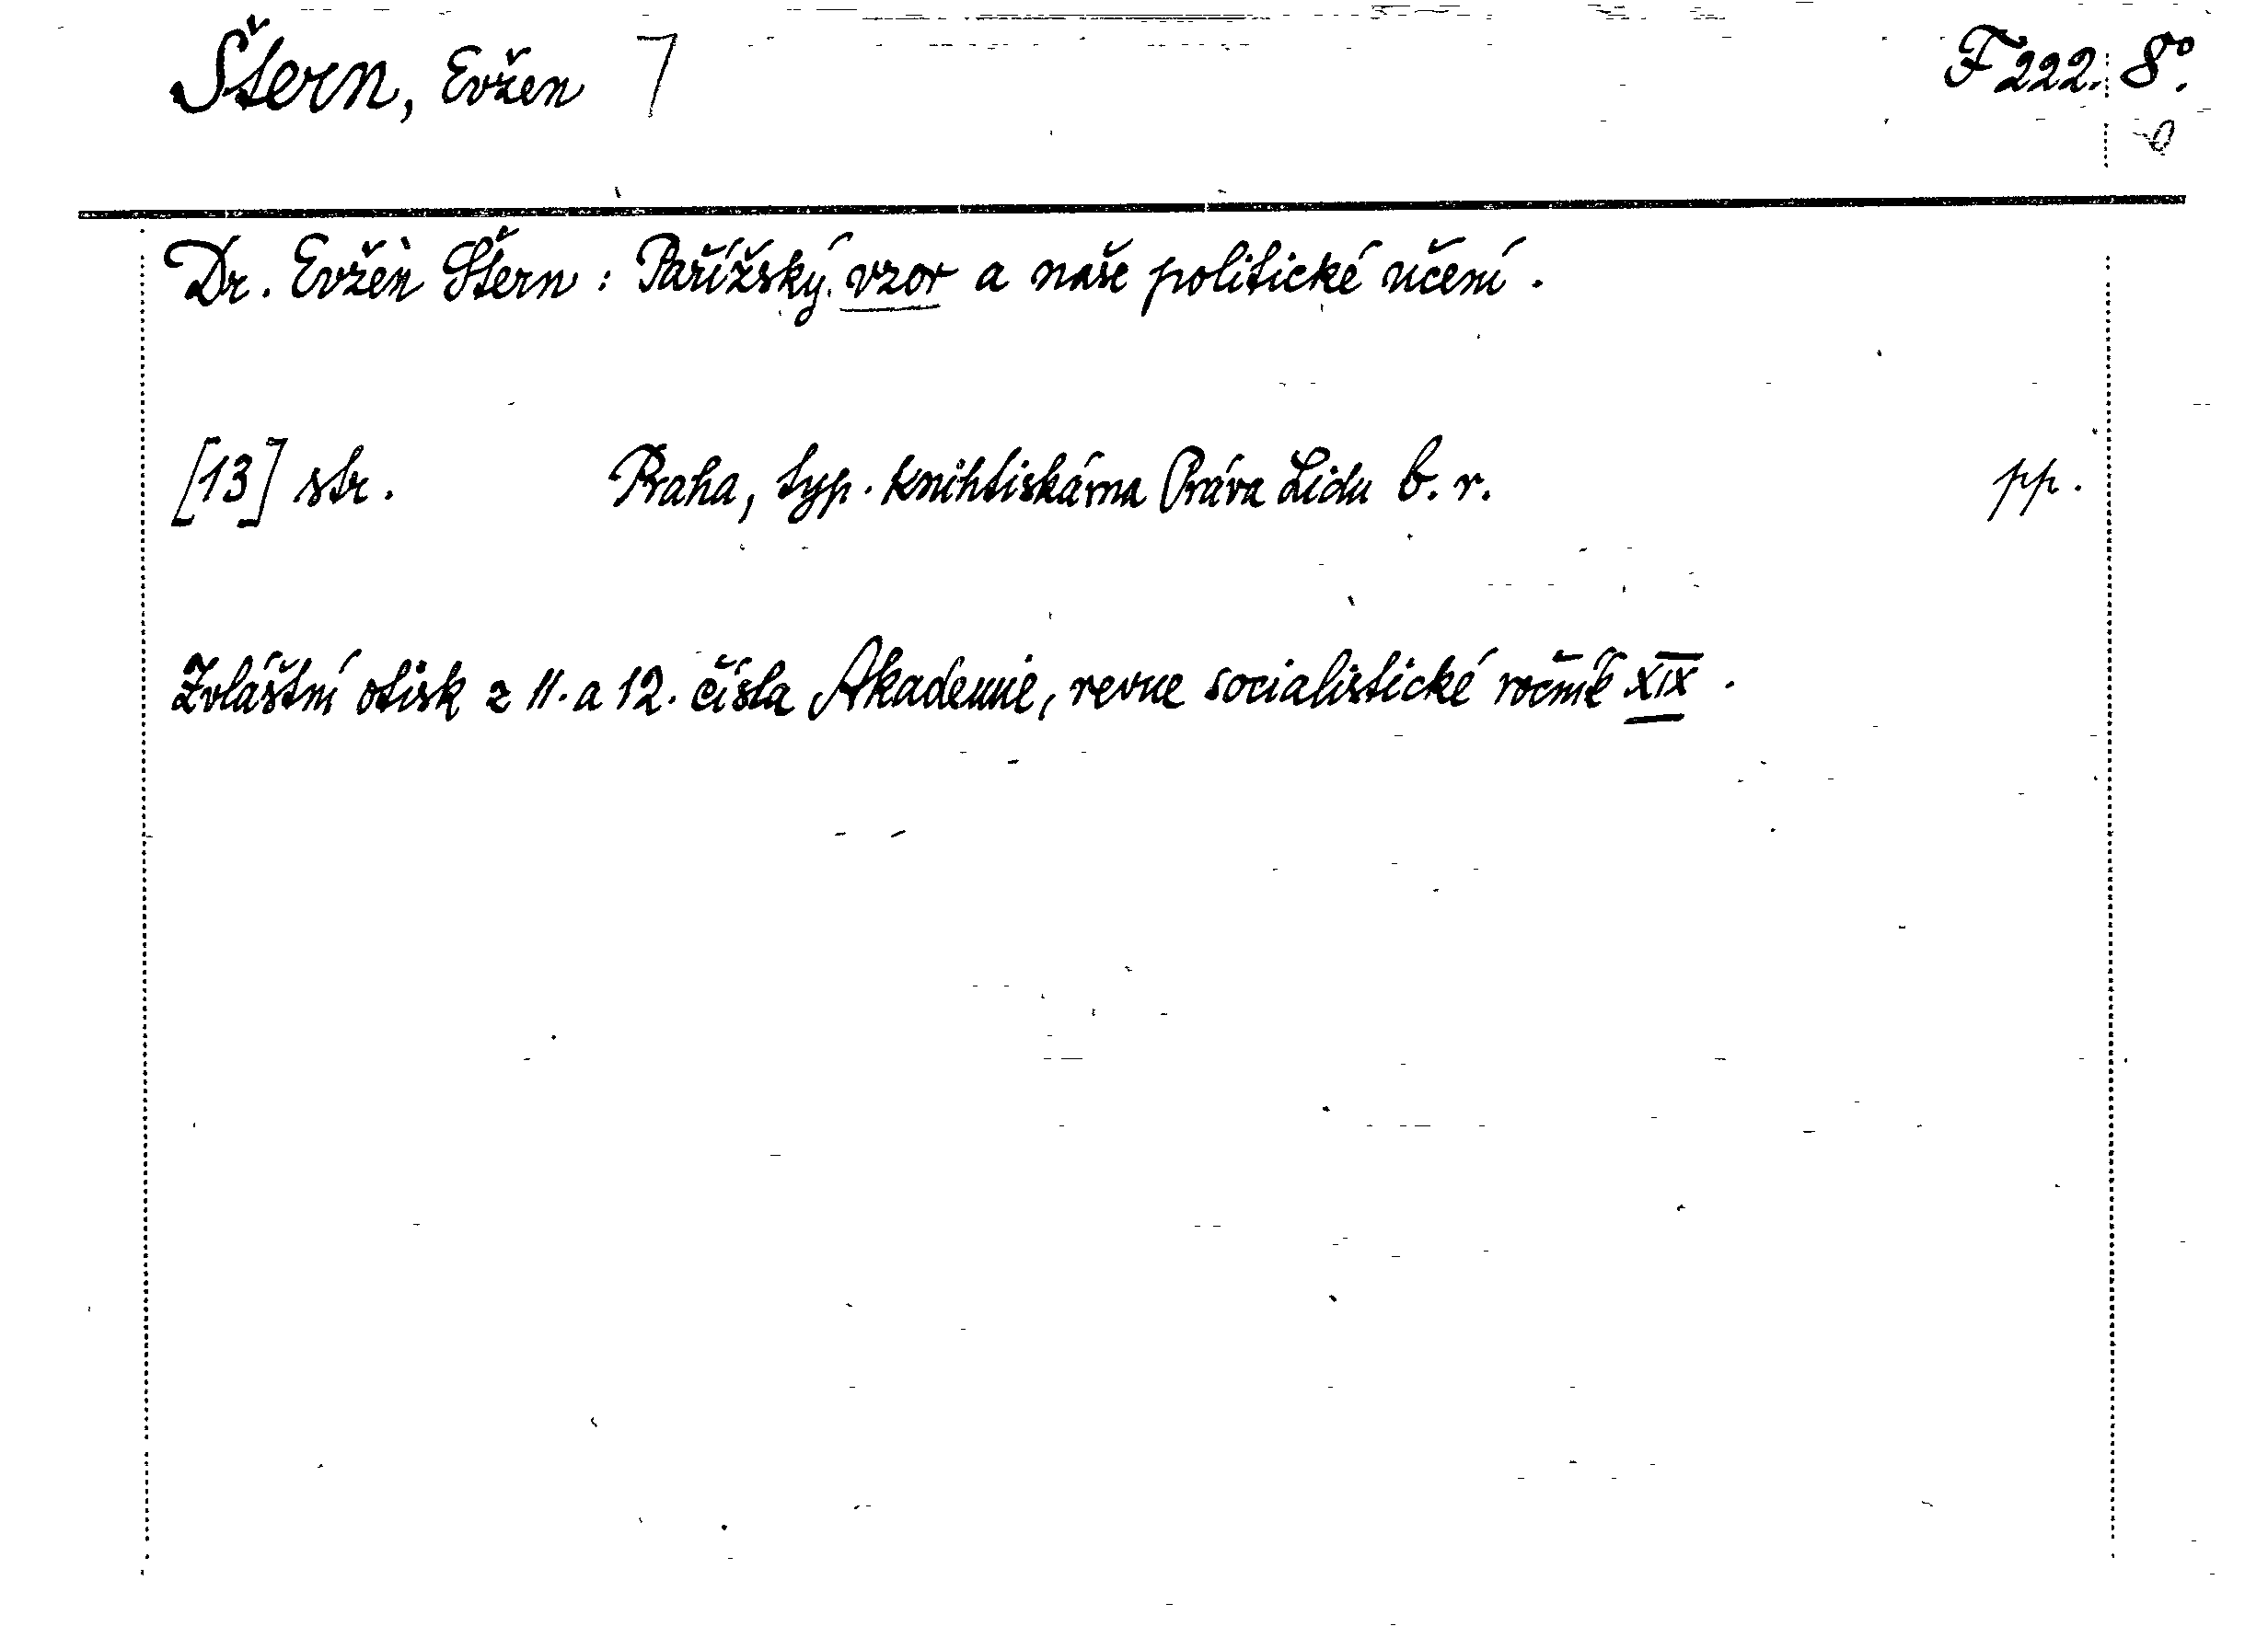 Štern, Evžen 7 F 222. 8°.
Dr. Evžen Štern: Pařížský vzor a naše politické učení.
[13] str. Praha, typ. Knihtiskárna Práva Lidu b. r. pp.
Zvláštní otisk z 11. a 12. čísla Akademie, revue socialistické ročník XIX.